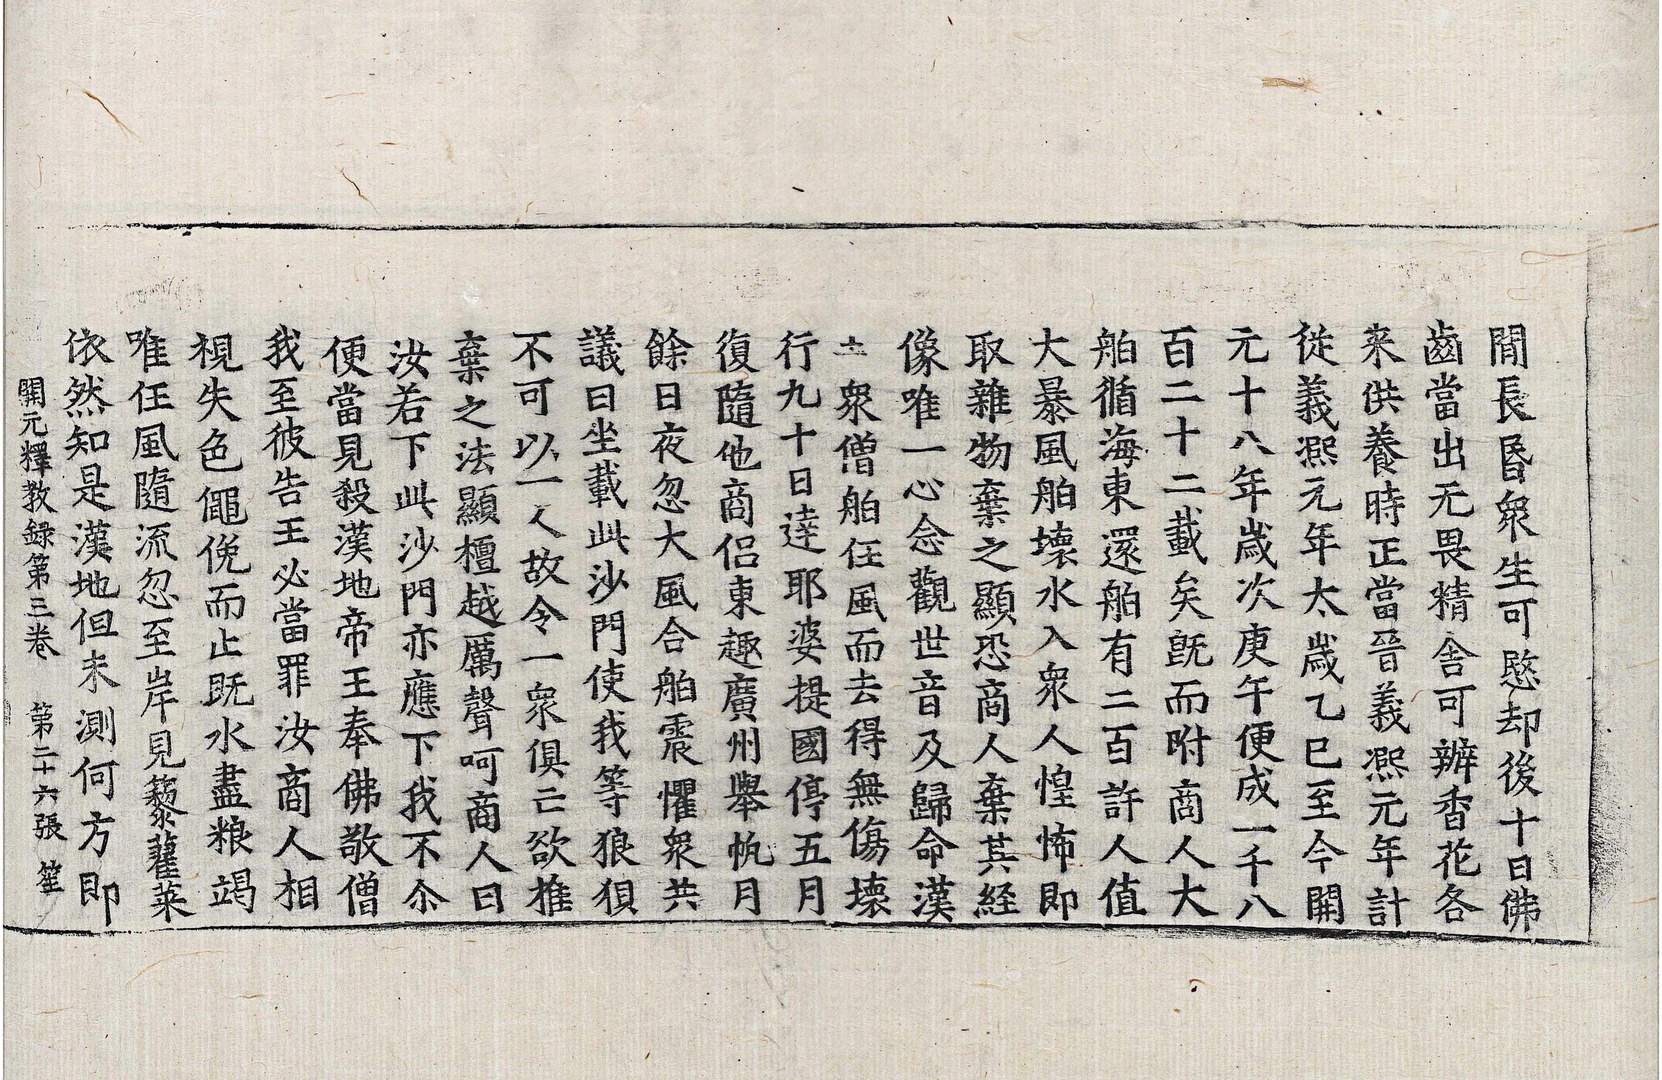 閒長昬衆生可愍却後十日佛
齒當出无畏精舍可辨香花各
来供養時正當晉義熈元年計
從義熈元年太歲乙巳至今開
元十八年歲次庚午便成一千八
百二十二載矣旣而附商人大
舶循海東還舶有二百許人值
大暴風舶壞水入衆人惶怖即
取雜物棄之顯恐商人棄其経
像唯一心念觀世音及歸命漢
土衆僧舶任風而去得無傷壞
行九十日達耶婆提國停五月
復隨他商侣東趣廣州舉帆月
餘日夜忽大風合舶震懼衆共
議曰坐載此沙門使我等狼狽
不可以一人故令一衆俱亡欲推
棄之法顯檀越厲聲呵商人曰
汝若下此沙門亦應下我不尒
便當見殺漢地帝王奉佛敬僧
我至彼告王必當罪汝商人相
視失色僶俛而止旣水盡粮竭
唯任風隨流忽至岸見藜藿菜
依然知是漢地但未測何方即
開元釋教録第三卷　第二十六張　笙